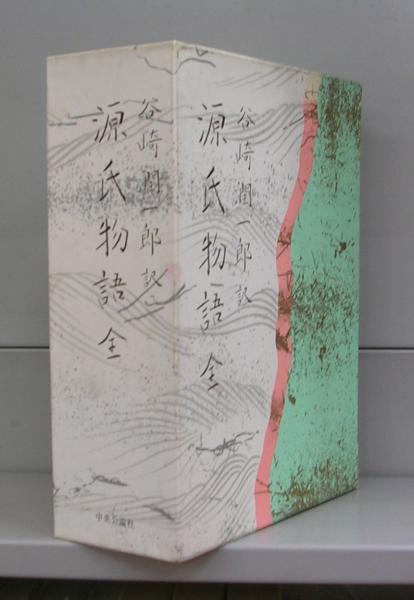 谷崎潤一郎訳
源氏物語 全
中央公論社
谷崎潤一郎訳
源氏物語 全